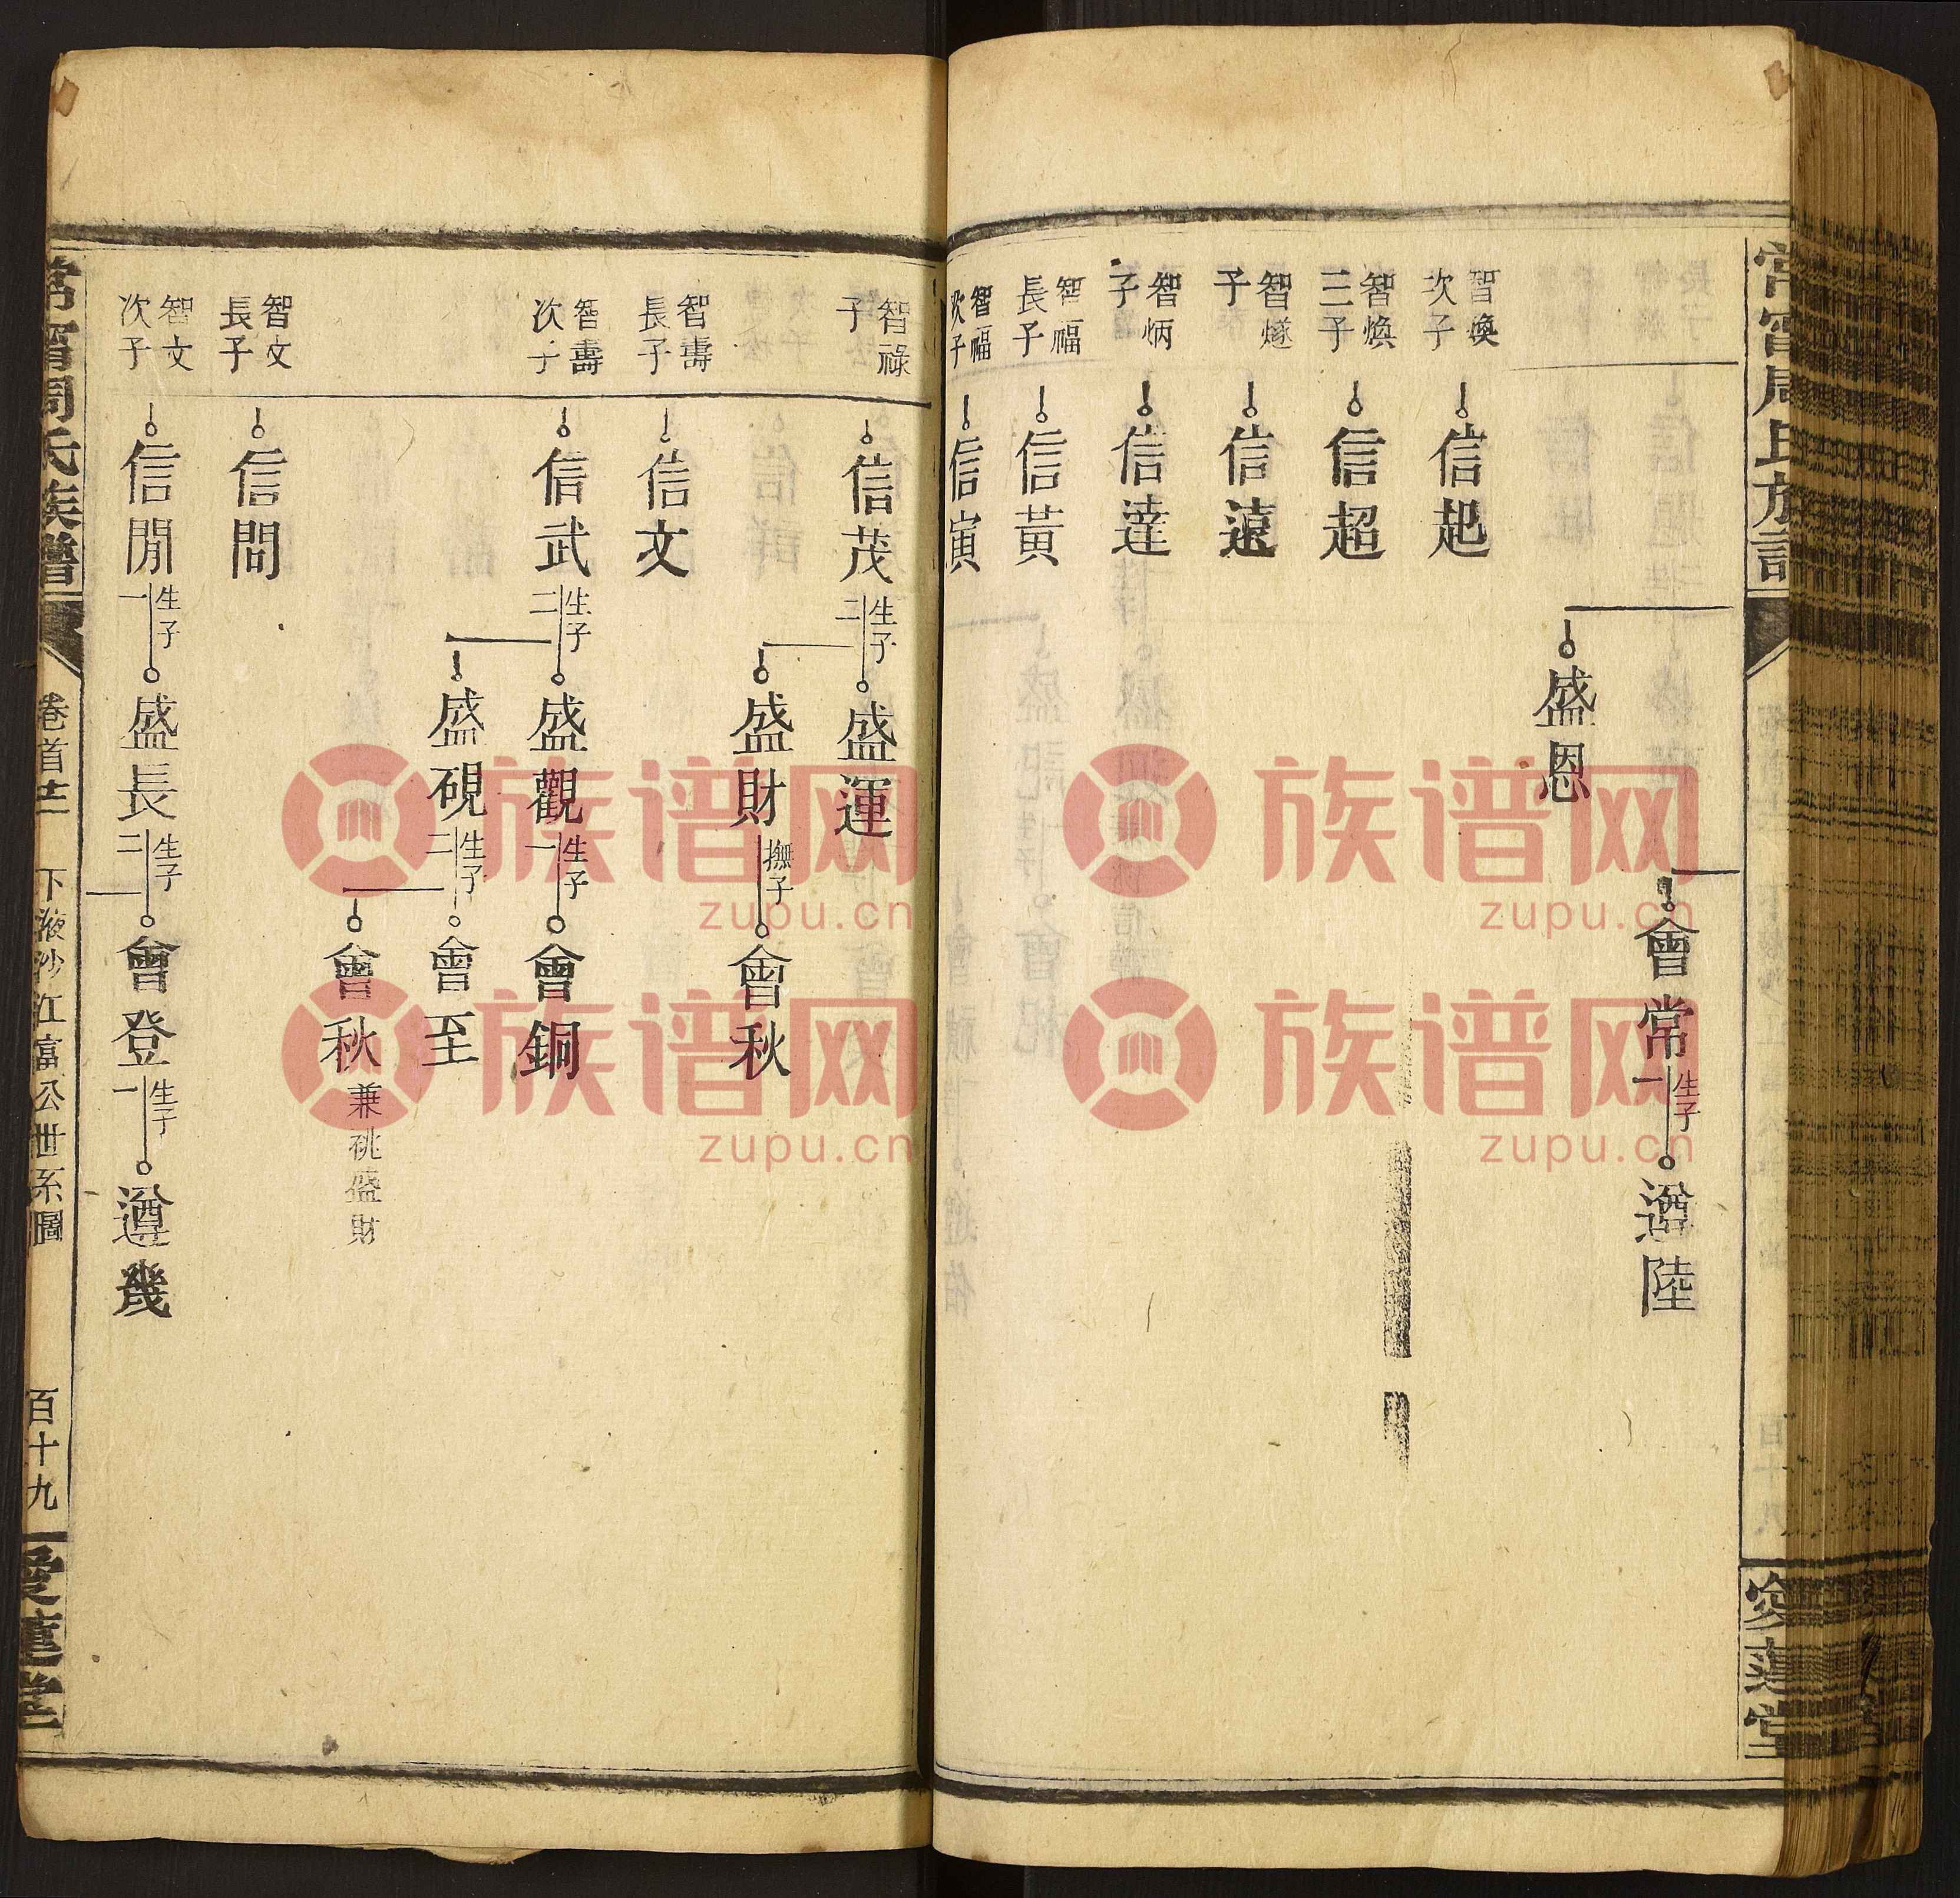 愛蓮堂
會常
生子一
遵陸
盛恩
智煥次子
信起
智煥三子
信超
智燧子
信遠
智炳子
信達
智福長子
信黃
智福次子
信寅
智祿子
信茂
生子二
盛運
盛財
撫子
會秋
智壽長子
信文
智壽次子
信武
生子二
盛觀
生子一
會銅
盛硯
生子二
會至
會秋
兼祧盛財
智文長子
信問
智文次子
信閒
生子一
盛長
生子二
會登
生子一
遵幾
常甯周氏族譜
卷首廿二
下液沙江富公世系圖
百十九
愛蓮堂
族谱网
zupu.cn
族谱网
zupu.cn
族谱网
zupu.cn
族谱网
zupu.cn